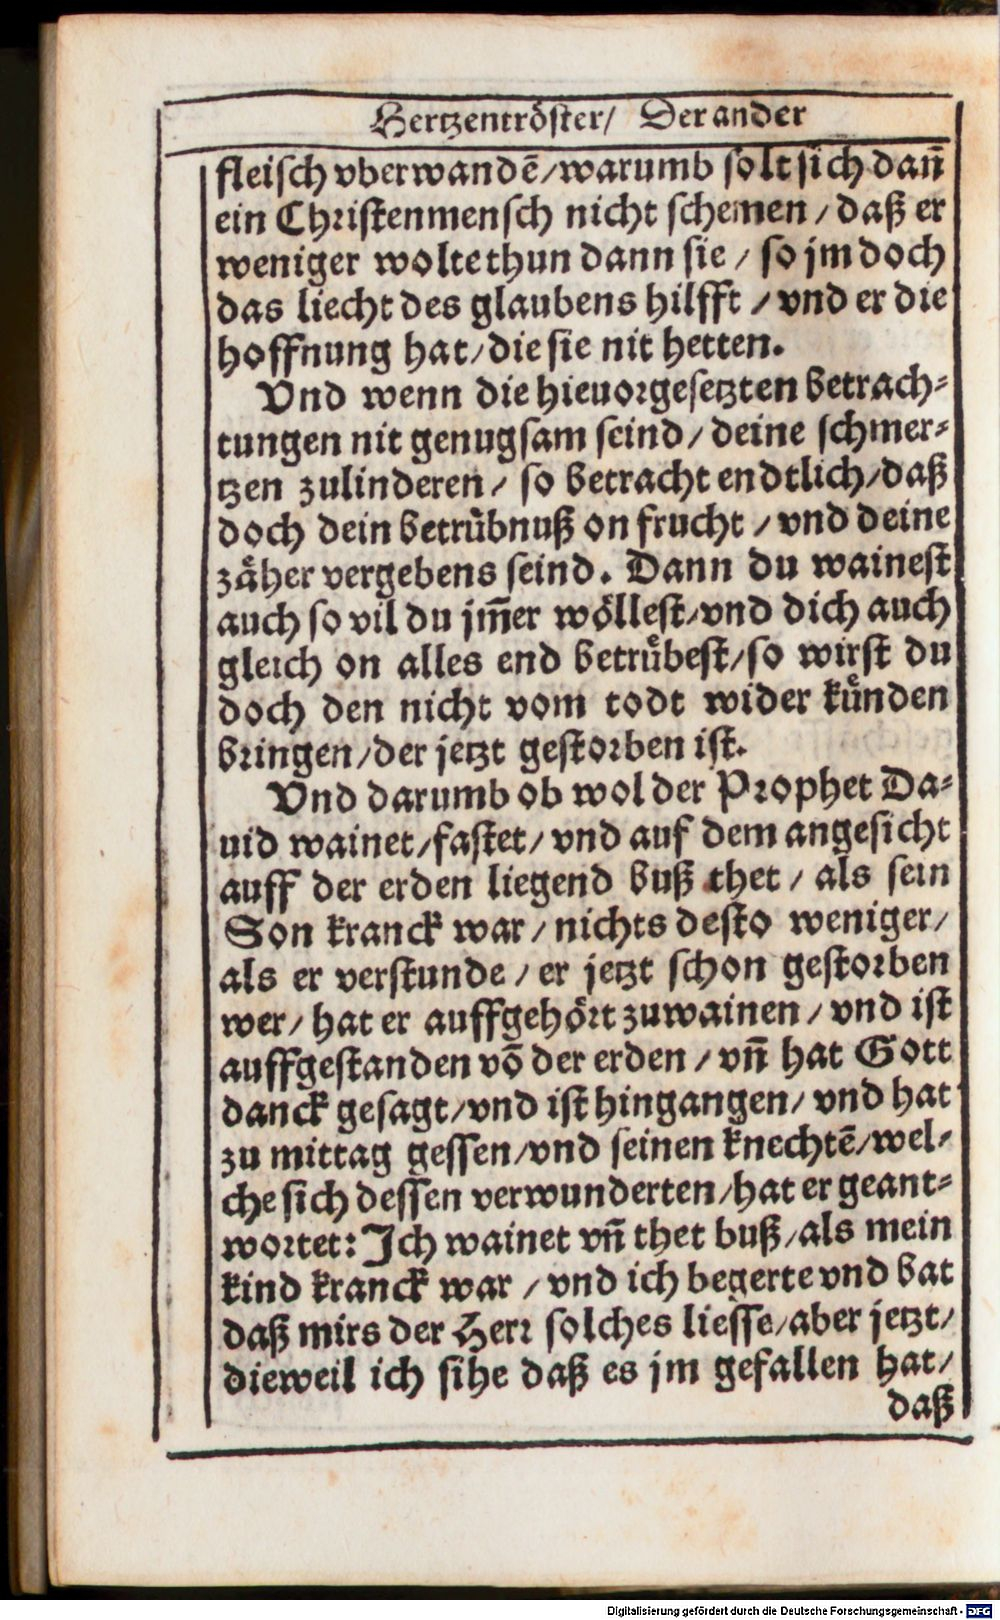 Hertzentröster/ Der ander
fleisch vberwandē/warumb solt sich dañ
ein Christenmensch nicht schemen/daß er
weniger wolte thun dann sie/ so jm doch
das liecht des glaubens hilfft/vnd er die
hoffnung hat/die sie nit hetten.
Vnd wenn die hieuorgesetzten betrach⸗
tungen nit genugsam seind/deine schmer⸗
tzen zulinderen/ so betracht endtlich/daß
doch dein betruͤbnuß on frucht/vnd deine
zaͤher vergebens seind. Dann du wainest
auch so vil du jm̄er woͤllest/vnd dich auch
gleich on alles end betruͤbest/so wirst du
doch den nicht vom todt wider kuͤnden
bringen/der jetzt gestorben ist.
Vnd darumb ob wol der Prophet Da⸗
uid wainet/fastet/vnd auf dem angesicht
auff der erden liegend buß thet/als sein
Son kranck war/nichts desto weniger/
als er verstunde/er jetzt schon gestorben
wer/hat er auffgehoͤrt zuwainen/vnd ist
auffgestanden vō der erden/vñ hat Gott
danck gesagt/vnd ist hingangen/vnd hat
zu mittag gessen/vnd seinen knechtē/wel⸗
che sich dessen verwunderten/hat er geant⸗
wortet: Ich wainet vñ thet buß/als mein
kind kranck war/vnd ich begerte vnd bat
daß mirs der Herr solches liesse/aber jetzt/
dieweil ich sihe daß es jm gefallen hat/
daß
Digitalisierung gefördert durch die Deutsche Forschungsgemeinschaft - DFG